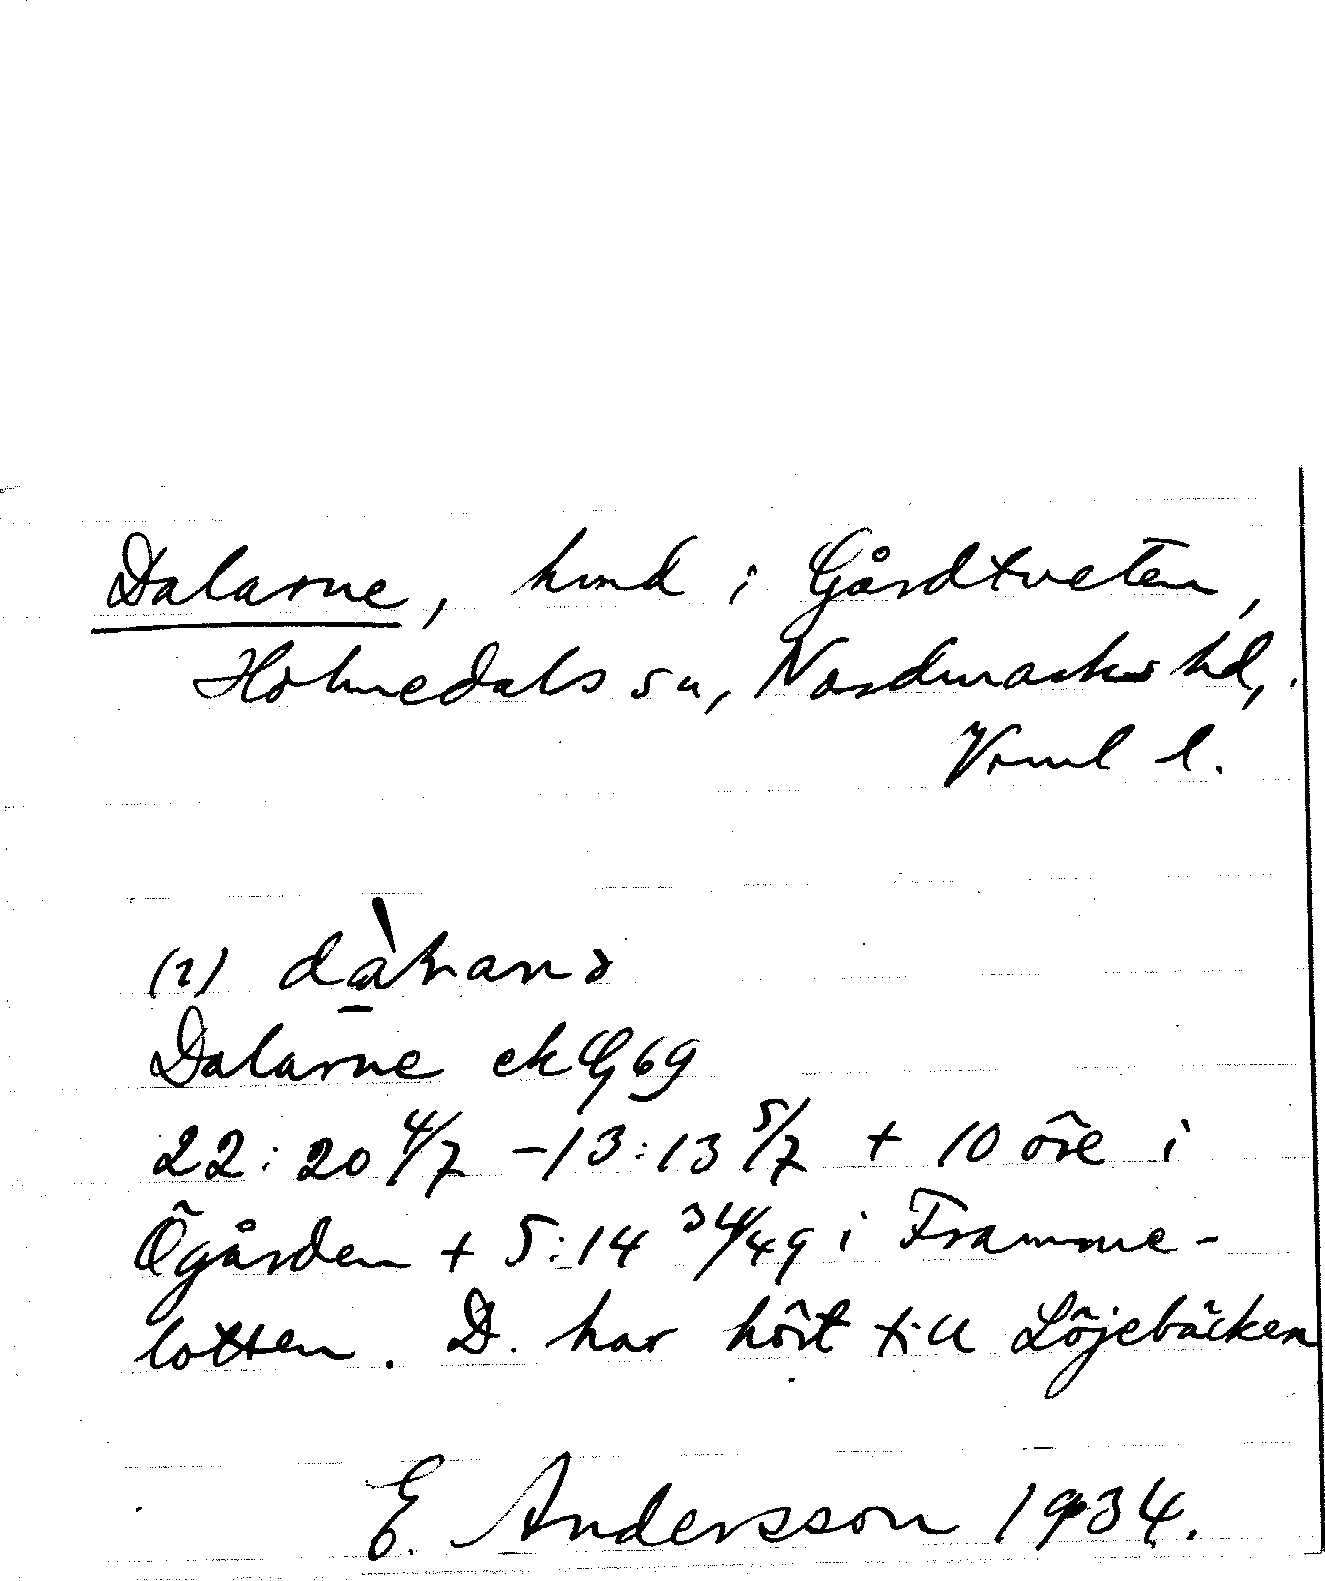 Dalarne, hmd i Gårdtveten,
Holmedals sn, Nordmarks hd,
Vrml l.
(1) dàɫarnə
Dalarne ek G 69
22:20 4/7 - 13:13 5/7 + 10 öre i
Ögården + 5:14 34/49 i Framme-
lotten. D. har hört till Löjebäcken
E. Andersson 1934.